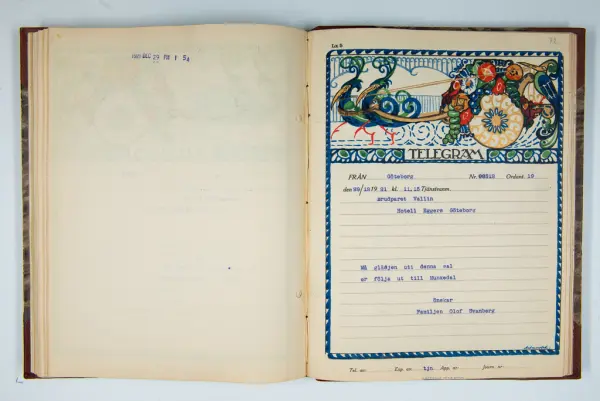 1921 DEC 29 PM 1 54
Lx 8
TELEGRAM
FRÅN Göteborg Nr. 00318 Ordant. 19
den 29/12 19 21 kl. 11,15 Tjänstanm.
Brudparet Wallin
Hotell Eggers Göteborg
Må glädjen uti denna sal
er följa ut till Munkedal
Önskar
Familjen Olof Swanberg
Tel. av: Exp. av: tjn. App. nr: Journ. nr: